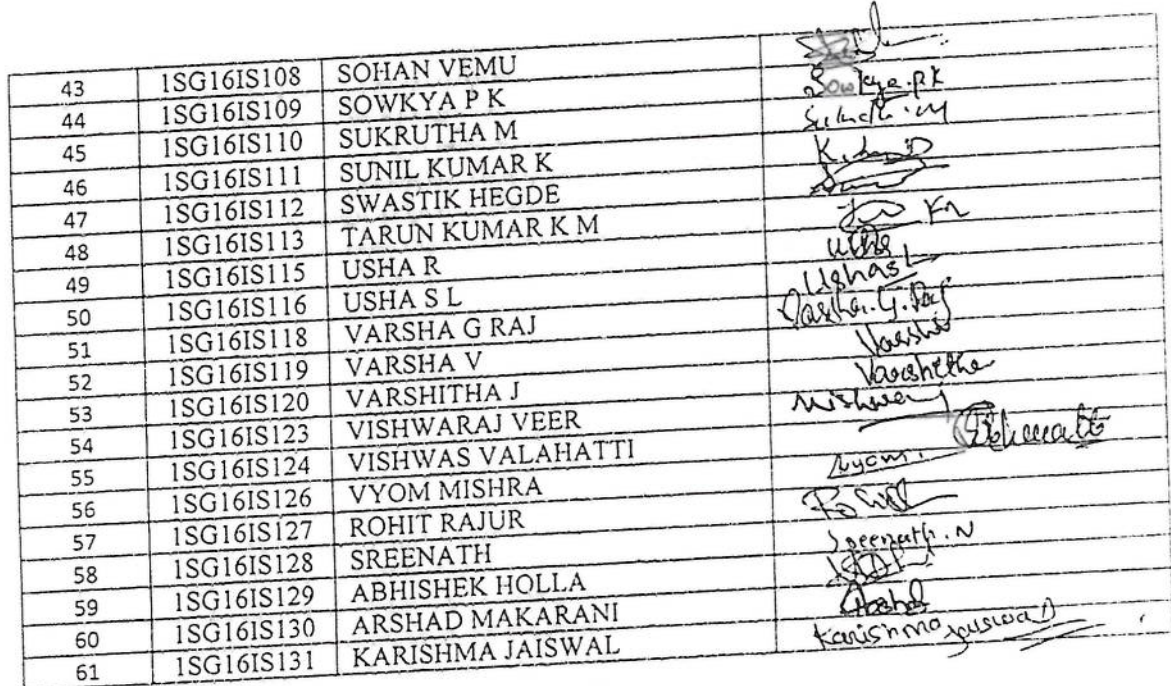 43 1SG16IS108 SOHAN VEMU
44 1SG16IS109 SOWKYA P K Sowkya.p.k
45 1SG16IS110 SUKRUTHA M Sukrutha.M
46 1SG16IS111 SUNIL KUMAR K
47 1SG16IS112 SWASTIK HEGDE
48 1SG16IS113 TARUN KUMAR K M
49 1SG16IS115 USHA R Usha
50 1SG16IS116 USHA S L Ushas L
51 1SG16IS118 VARSHA G RAJ Varsha.G.Raj
52 1SG16IS119 VARSHA V Varsha
53 1SG16IS120 VARSHITHA J Varshitha
54 1SG16IS123 VISHWARAJ VEER
55 1SG16IS124 VISHWAS VALAHATTI
56 1SG16IS126 VYOM MISHRA Vyom.
57 1SG16IS127 ROHIT RAJUR
58 1SG16IS128 SREENATH Sreenath.N
59 1SG16IS129 ABHISHEK HOLLA
60 1SG16IS130 ARSHAD MAKARANI
61 1SG16IS131 KARISHMA JAISWAL Karishma Jaiswal